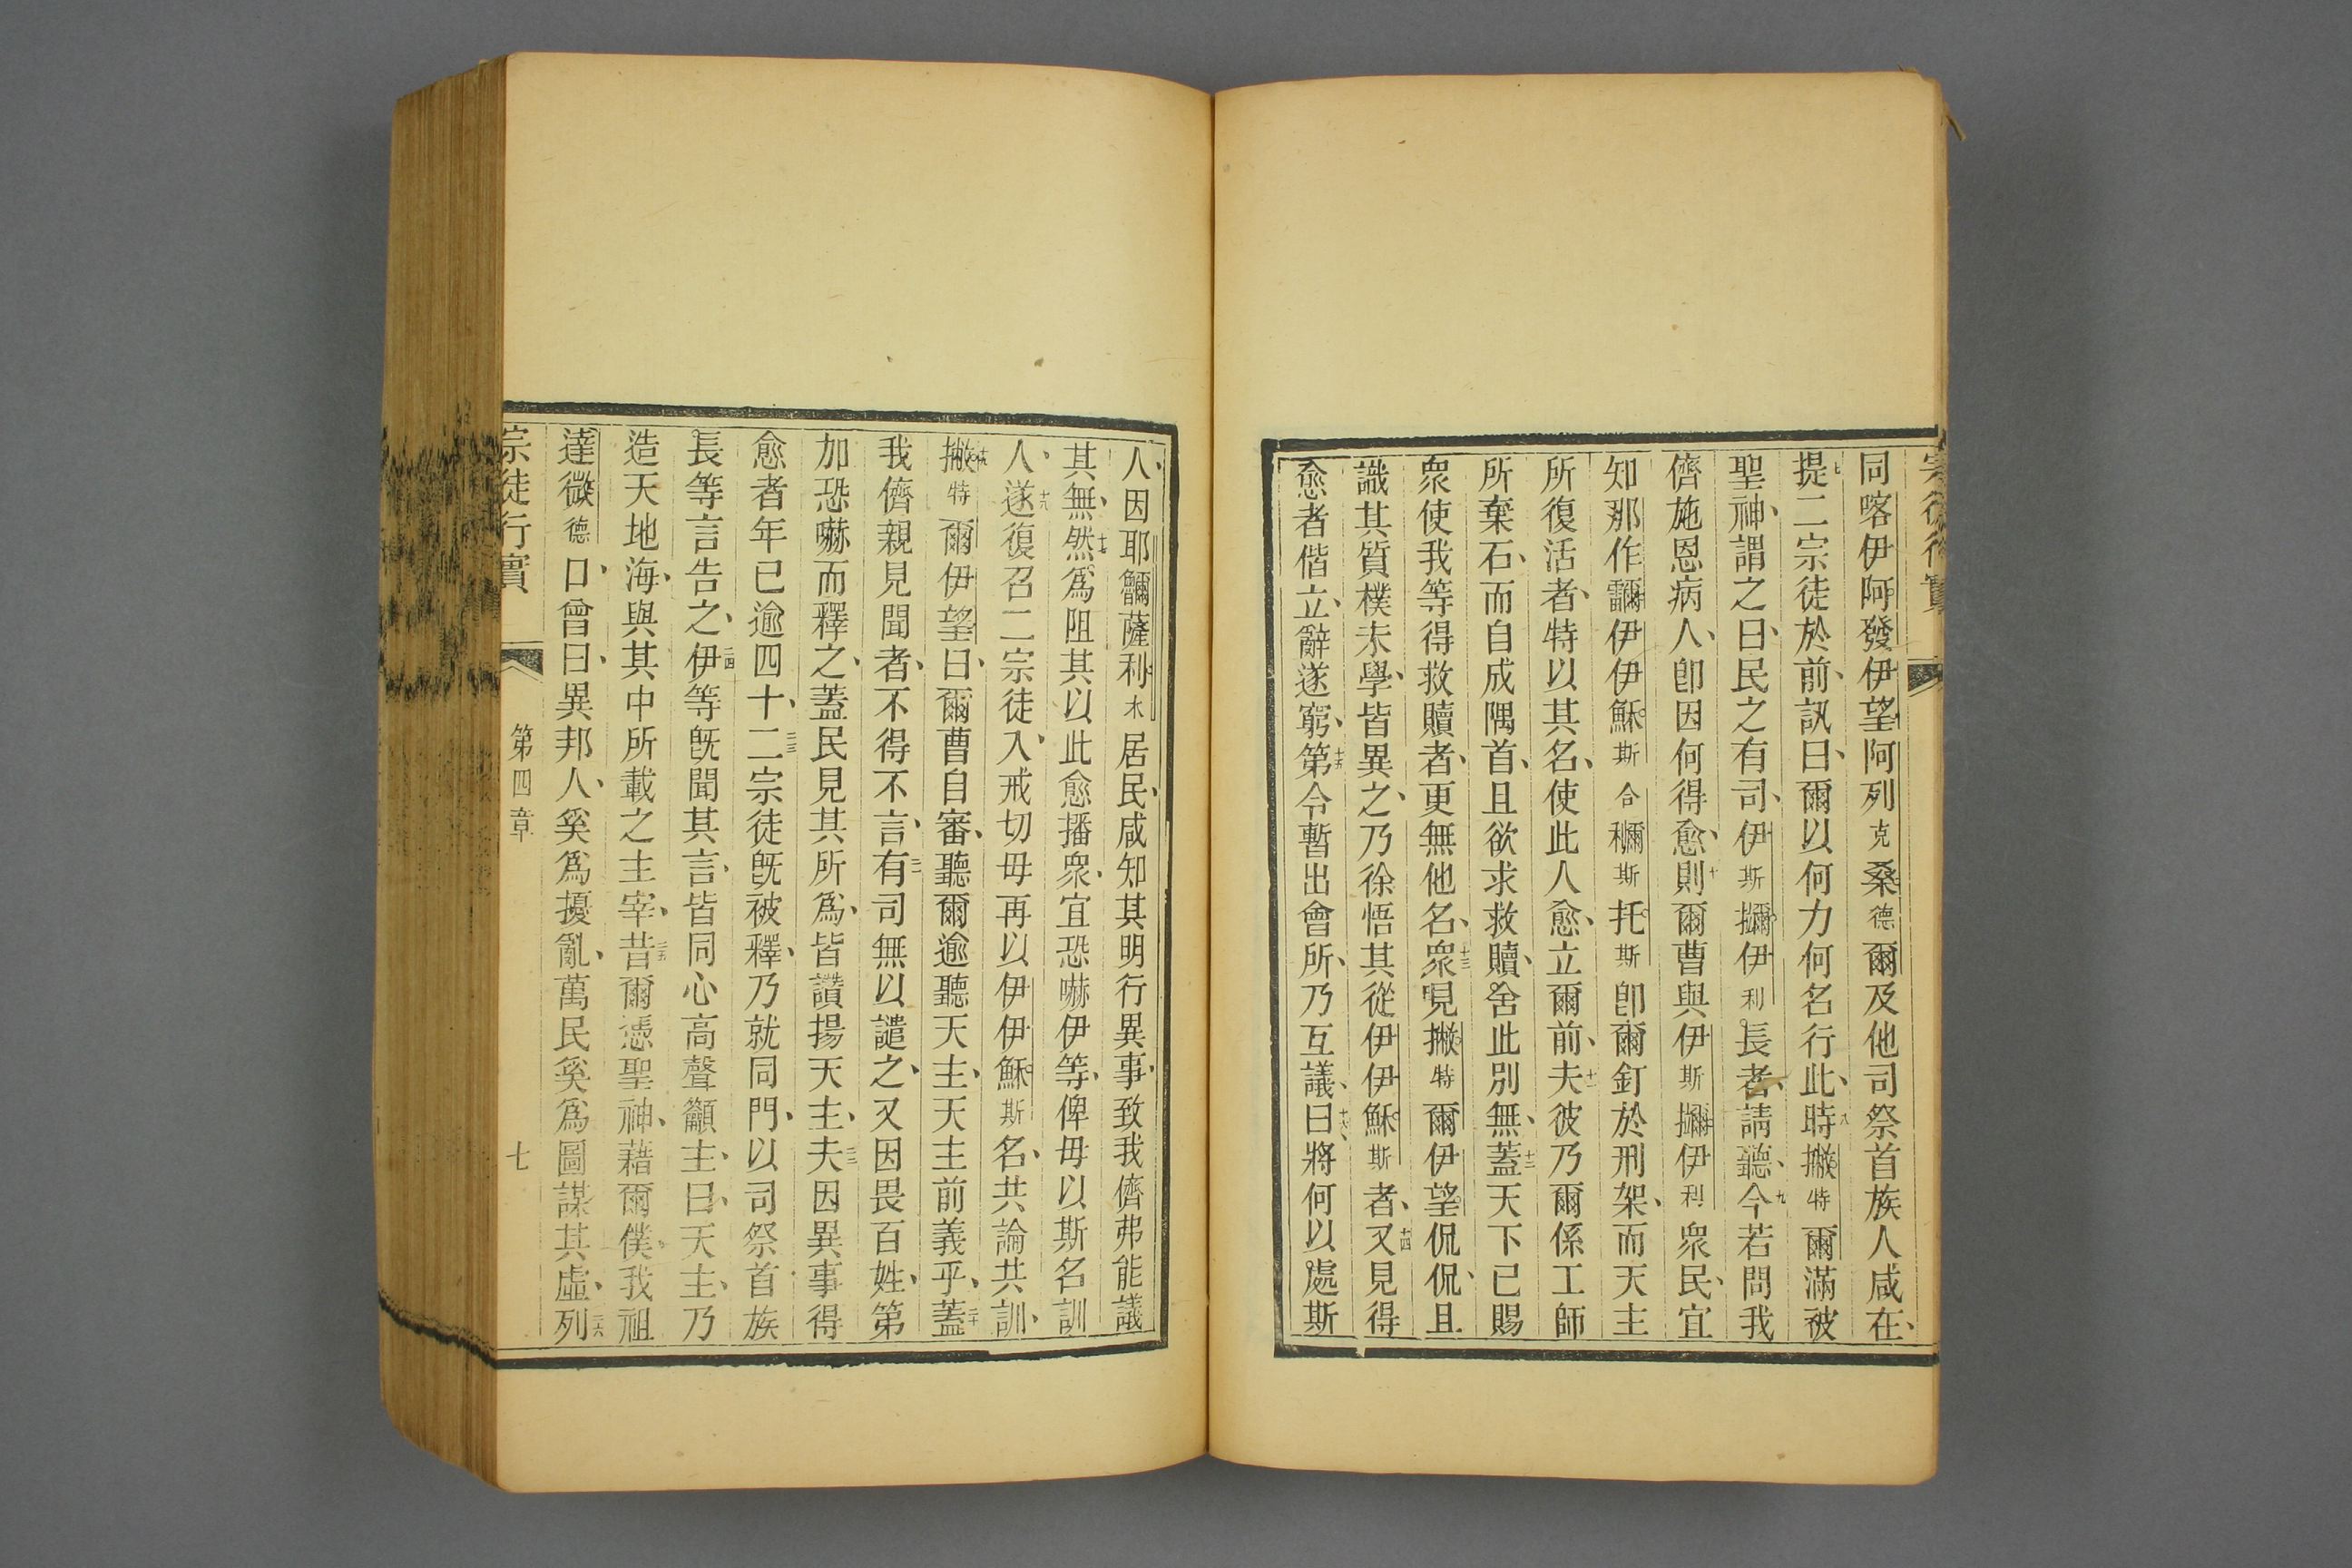 同喀伊阿發伊望阿列克桑德爾及他司祭首族人咸在、
七提二宗徒於前、訊曰、爾以何力何名行此、八時撇特爾滿被
聖神、謂之曰、民之有司、伊斯擩伊利長者、請聽、九今若問我
儕施恩病人、卽因何得愈、十則爾曹與伊斯擩伊利衆民、宜
知那作爾伊伊穌斯合斯托斯卽爾釘於刑架、而天主
所復活者、特以其名、使此人愈、立爾前、十一夫彼乃爾係工師
所棄石、而自成隅首、且欲求救贖、舍此別無、十二蓋天下已賜
衆使我等得救贖者、更無他名、十三衆見撇特爾伊望侃侃、且
識其質樸未學、皆異之、乃徐悟其從伊伊穌斯者、十四又見得
愈者偕立、辭遂窮、十五第令暫出會所、乃互議、十六曰、將何以處斯
人、因耶薩利木居民、咸知其明行異事、致我儕弗能議
其無、十七然爲阻其以此愈播衆、宜恐嚇伊等、俾毋以斯名訓
人、十八遂復召二宗徒入、戒切毋再以伊伊穌斯名、共論共訓、
十九撇特爾伊望曰、爾曹自審、聽爾逾聽天主、天主前義乎、二十蓋
我儕親見聞者、不得不言、二一有司無以譴之、又因畏百姓、第
加恐嚇而釋之、蓋民見其所爲、皆讚揚天主、二二夫因異事得
愈者年已逾四十、二三二宗徒旣被釋、乃就同門、以司祭首族
長等言告之、二四伊等旣聞其言、皆同心高聲籲主、曰、天主、乃
造天地海與其中所載之主宰、二五昔爾憑聖神、藉爾僕我祖
達微德口、曾曰、異邦人奚爲擾亂、萬民奚爲圖謀其虛、二六列
宗徒行實
第四章
七